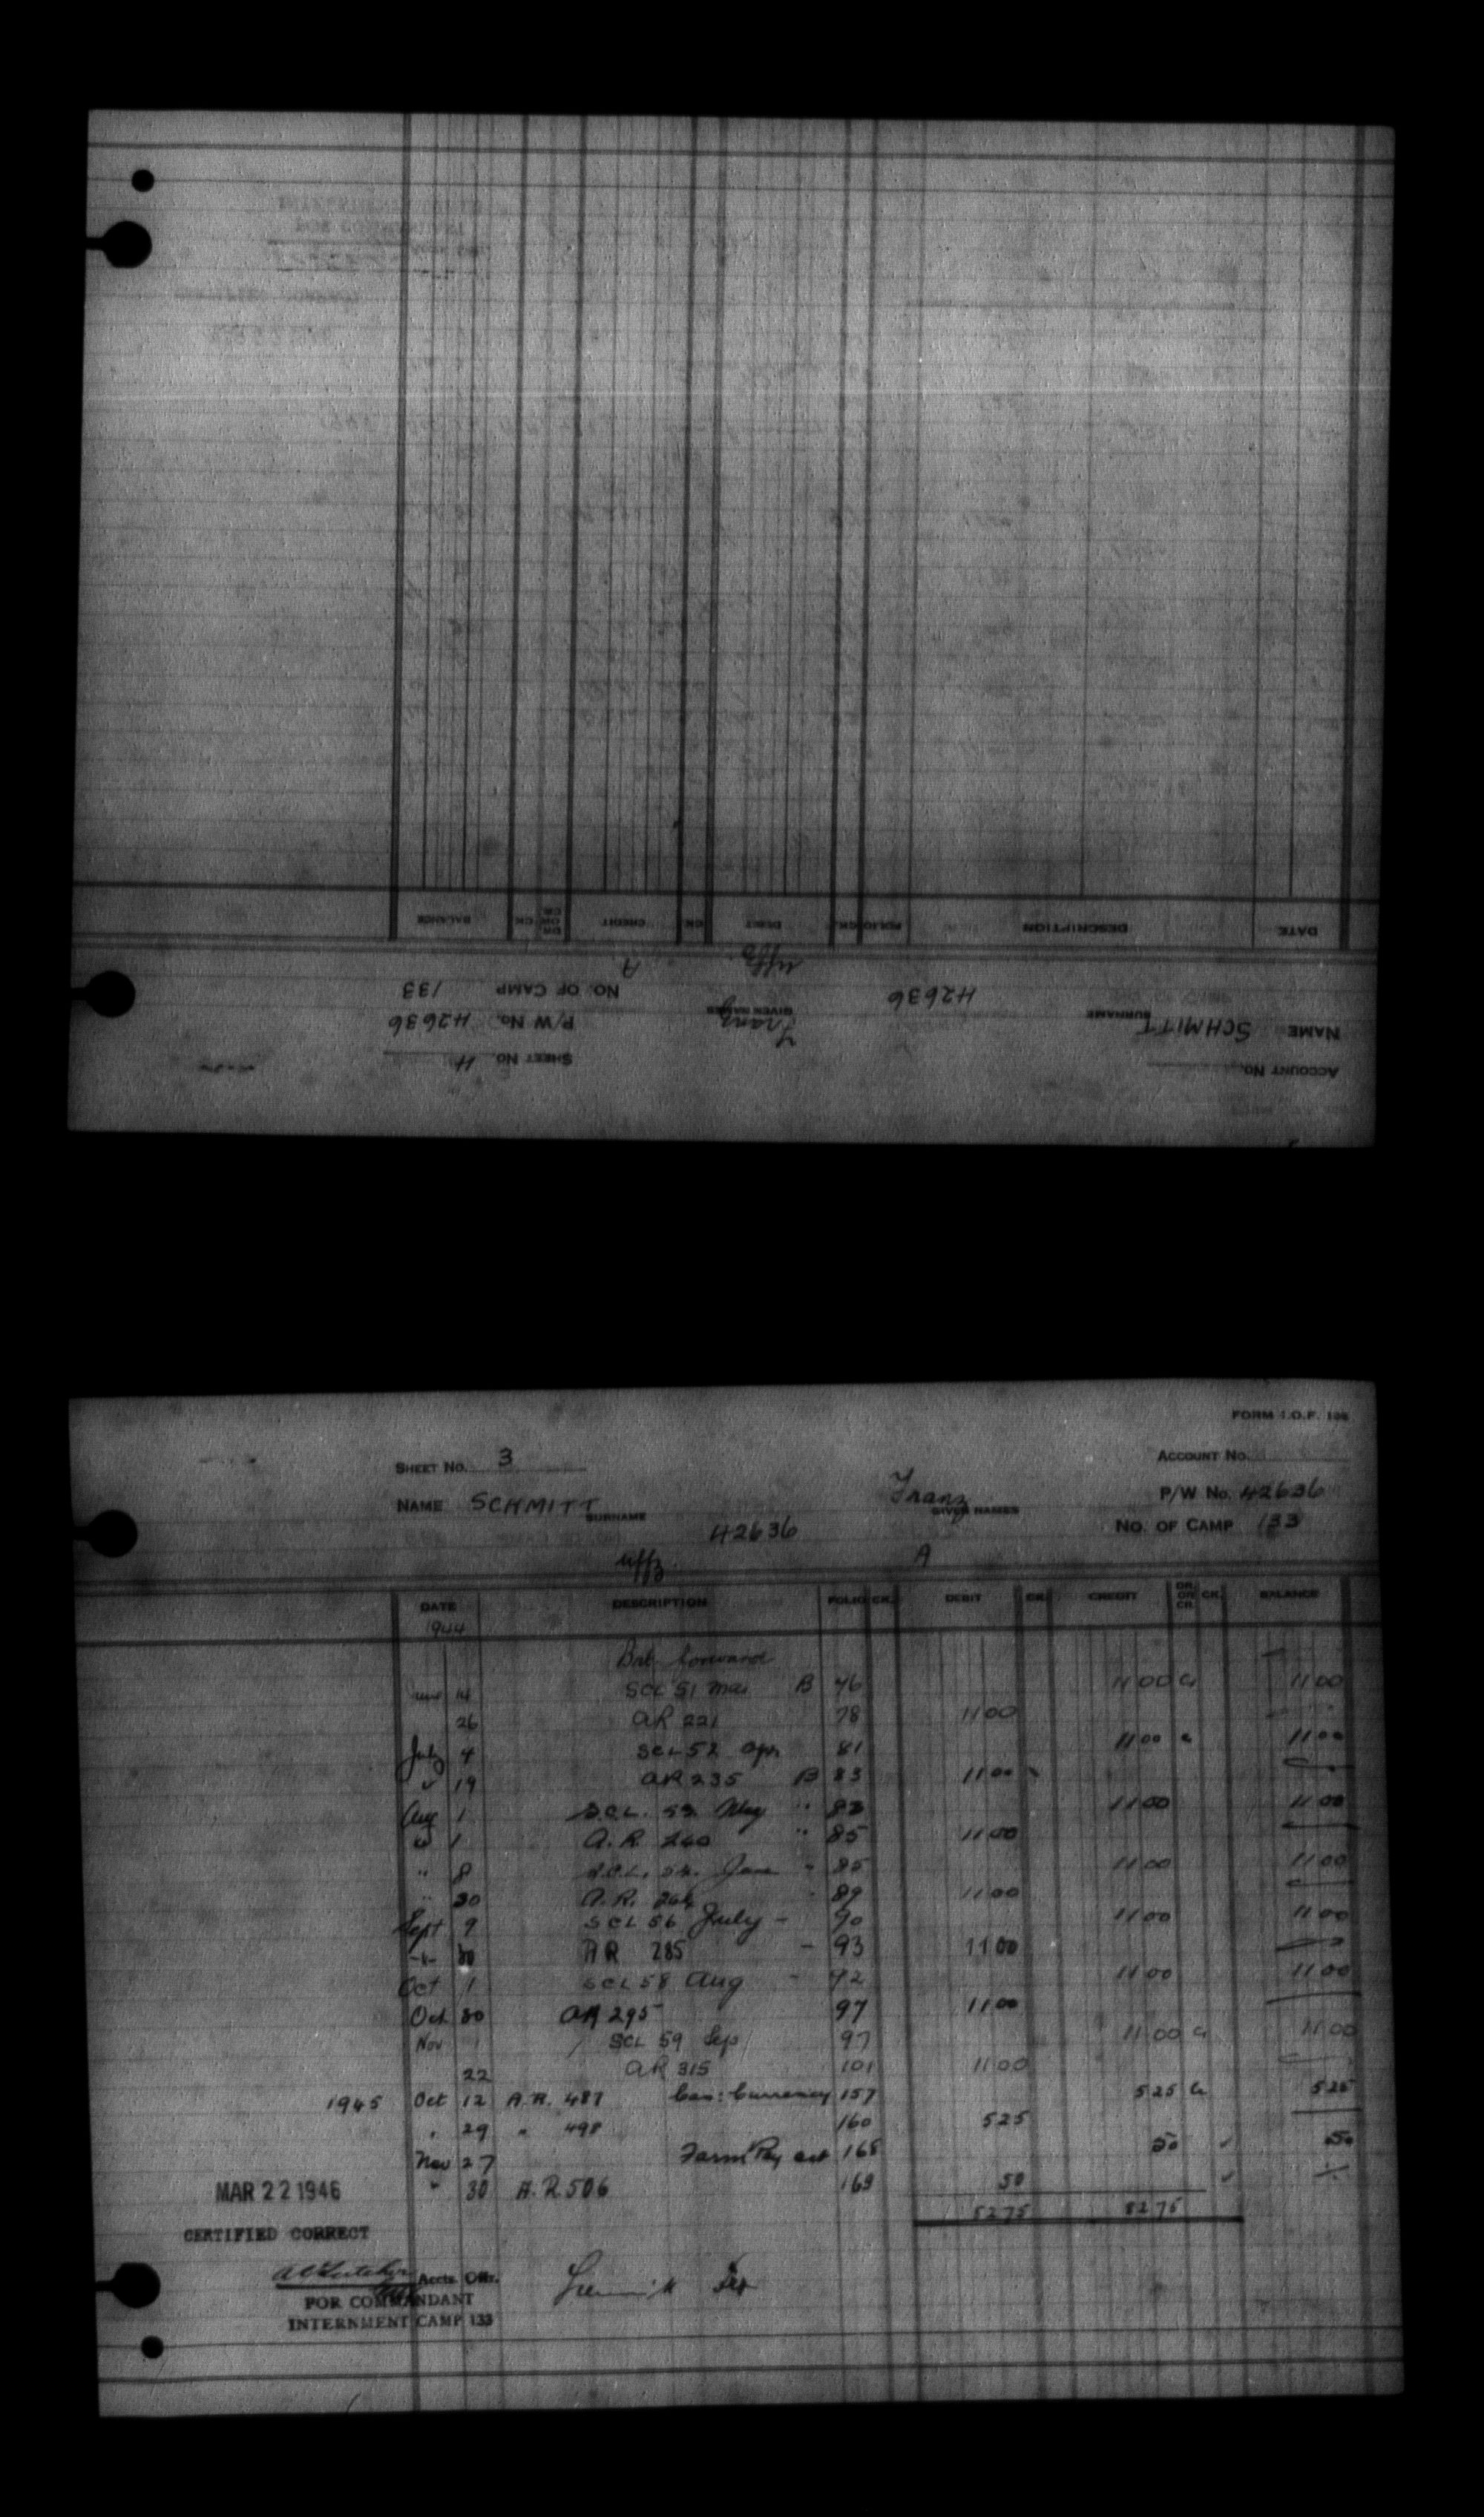 ACCOUNT No.
SHEET NO. 4
NAME SCHMITT
SURNAME
Franz
GIVEN NAMES
P/W No. 42636
42636
NO. OF CAMP 133
Uffz. A
DATE DESCRIPTION FOLIO CK. DEBIT CK. CREDIT DR. OR CR. CK. BALANCE
FORM I.O.F.
SHEET NO. 3
ACCOUNT NO.
NAME SCHMITT
SURNAME
Franz
GIVEN NAMES
P/W No. 42636
42636
NO. OF CAMP 133
Uffz. A
DATE DESCRIPTION FOLIO CK. DEBIT CK. CREDIT DR. OR CR. CK. BALANCE
1944
Bal. forward —
June 14 SCL 51 Mar B 76 11 00 Cr 11 00
26 AR 221 78 11 00
July 4 SCL 52 Apr 81 11 00 11 00
" 19 AR 235 B 83 11 00
Aug 1 S.C.L. 53 May " 83 11 00 11 00
" 1 A.R. 240 " 85 11 00
" 8 S.C.L. June " 85 11 00 11 00
" 30 A.R. 89 11 00
Sept 9 SCL 56 July - 90 11 00 11 00
30 AR 285 - 93 11 00
Oct 1 SCL 58 Aug - 92 11 00 11 00
Oct 30 AR 295 97 11 00
Nov 1 SCL 59 Sep 97 11 00 Cr 11 00
22 AR 315 101 11 00
1945 Oct 12 A.R. 487 Can: Currency 157 5 25 Cr 5 25
" 29 " 498 160 5 25
Nov 27 Farm Pay act 168 50 ✓ 50
MAR 22 1946 " 30 A.R 506 169 50 ✓
82 75 82 75
CERTIFIED CORRECT
Accts. Offr.
FOR COMMANDANT
INTERNMENT CAMP 133